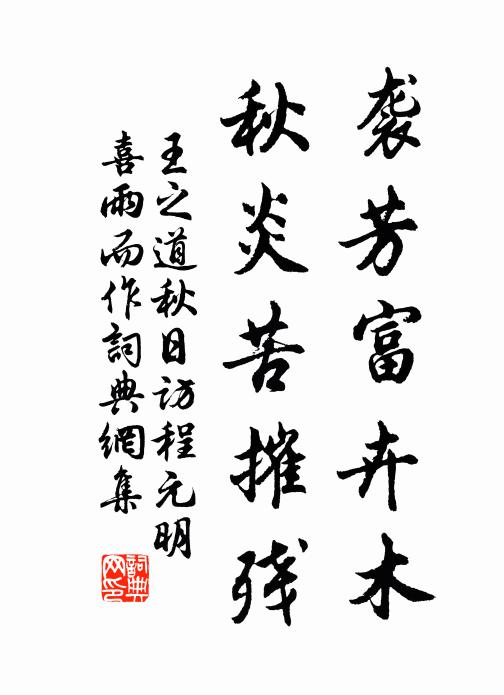 袭芳富卉木
秋炎苦摧残
王之道秋日访程元明
喜雨而作詞典網集
詞典
网印